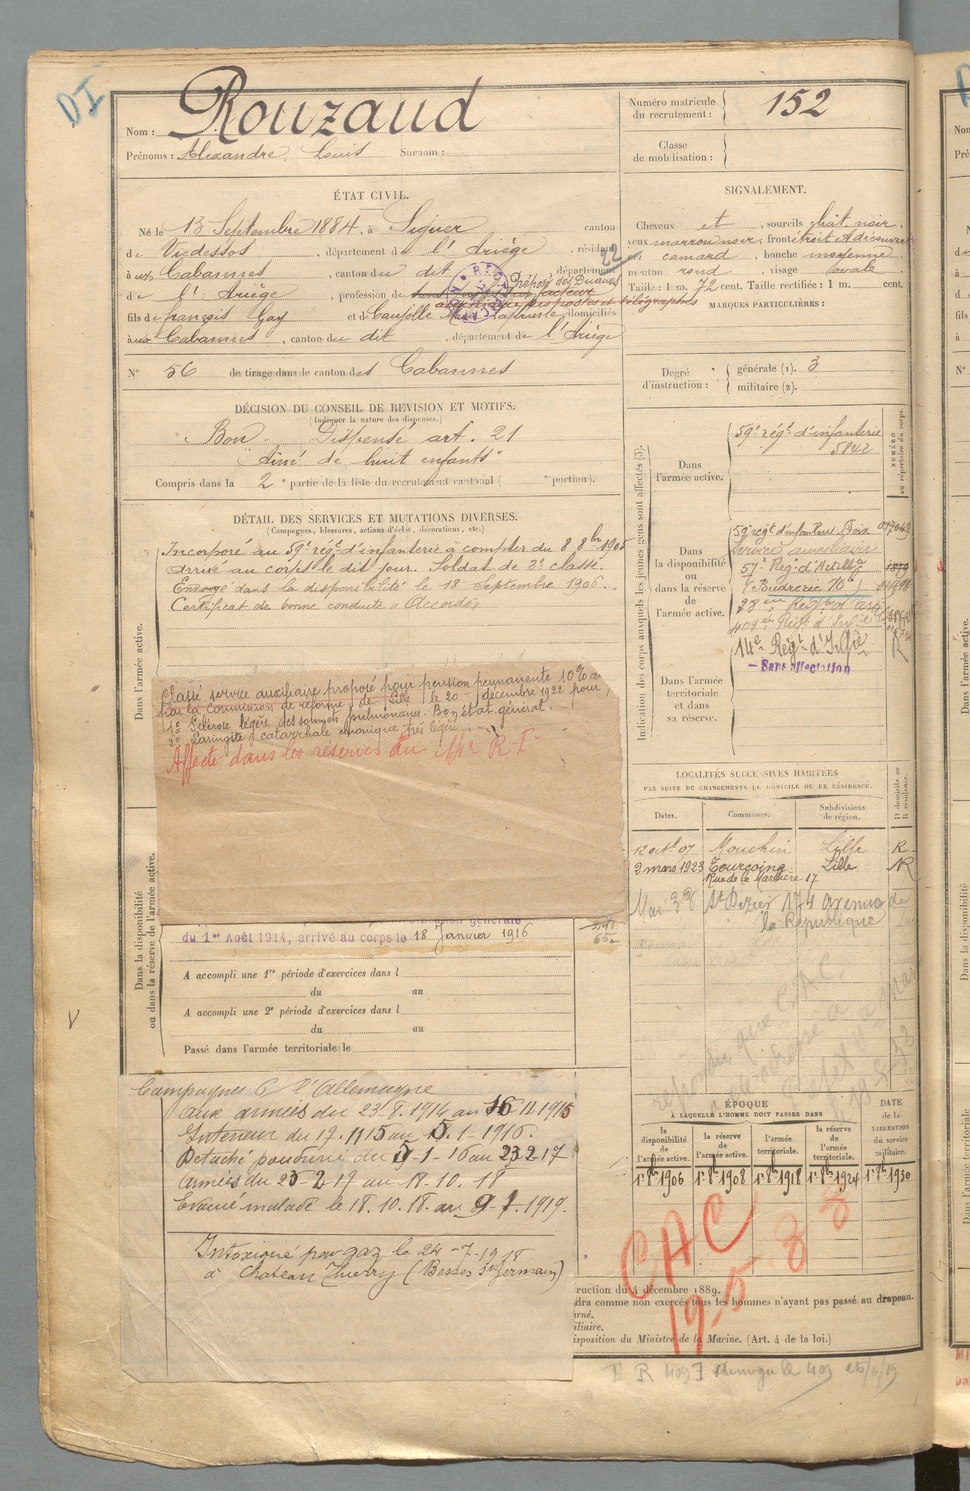 DI
Nom : Rouzaud
Prénoms : Alexandre, Louis Surnom :
Numéro matricule du recrutement : 152
Classe de mobilisation :
ÉTAT CIVIL.
Né le 13 Septembre 1884, à Siguer canton
de Vicdessos, département de l'Ariège, résidant
à aux Cabannes, canton du dit, département
22
de l'Ariège, profession de Préposé des Douanes
facteur
auxiliaire des postes et télégraphes
fils de françois Gay et de domiciliés
à aux Cabannes, canton du dit, département de l'Ariège
N° 56 de tirage dans le canton des Cabannes
SIGNALEMENT.
Cheveux et, sourcils chât. noir,
yeux marron noir, front étroit & découvert
camard, bouche moyenne,
menton rond, visage ovale
Taille : 1 m. 72 cent. Taille rectifiée : 1 m. cent.
MARQUES PARTICULIÈRES :
Degré d'instruction : générale (1). 3
militaire (2).
DÉCISION DU CONSEIL DE REVISION ET MOTIFS.
(Indiquer la nature des dispenses.)
Bon. Dispensé art. 21
"Ainé de huit enfants"
Compris dans la 2e partie de la liste du recrutement cantonal ( e portion).
DÉTAIL DES SERVICES ET MUTATIONS DIVERSES.
(Campagnes, blessures, actions d'éclat, décorations, etc.)
Incorporé au 59e régt d'infanterie à compter du 8 8bre 1905
Arrivé au corps le dit jour. Soldat de 2e classe.
Envoyé dans la disponibilité le 18 Septembre 1906.
Certificat de bonne conduite "Accordé"
Dans l'armée active.
Classé service auxiliaire proposé pour pension permanente 10%
par la commission de réforme de Lille le 20 décembre 1922 pour
1° Sclérose légère des sommets pulmonaires. Bon état général.
2° Laryngite catarrhale chronique très légère.
Affecté dans les réserves du R. I.
Dans la disponibilité ou dans la réserve de l'armée active.
du 1er Août 1914, arrivé au corps le 18 Janvier 1916
A accompli une 1re période d'exercices dans l
du au
A accompli une 2e période d'exercices dans l
du au
Passé dans l'armée territoriale le
V
Campagnes C. l'Allemagne
aux armées du 23.8.1914 au 16 11 1915
Intérieur du 17.11 15 au 5.1-1916.
Détaché poudrerie du 6-1-16 au 23 2 17
Armées du 23-2-17 au 18.10.18
Evacué malade le 18.10.18. au 9-7.1919.
Intoxiqué par gaz le 24-7-1918
à Chateau Thierry (Besses St Germain)
Indication des corps auxquels les jeunes gens sont affectés (3).
NUMÉRO au répertoire du corps.
Dans l'armée active.
59e régt d'infanterie
5842
Dans la disponibilité ou dans la réserve de l'armée active.
59e régt d'infanterie Foix
Service auxiliaire
57e Régt d'Artillie
(Poudrerie)
23e Régt d'art
409e Régt d'Infie
14e Régt d'Infie R
Sans affectation
Dans l'armée territoriale et dans sa réserve.
LOCALITÉS SUCCESSIVES HABITÉES
PAR SUITE DE CHANGEMENTS DE DOMICILE OU DE RÉSIDENCE.
Dates. Communes. Subdivisions de région. D domicile ou R résidence.
12 oct 07 Mouchin Lille R
2 mars 1923 Tourcoing Lille R
Rue de la 17
Mai 38 St Dizier 174 avenue de
la République
ÉPOQUE
À LAQUELLE L'HOMME DOIT PASSER DANS
la disponibilité de l'armée active. la réserve de l'armée active. l'armée territoriale. la réserve de l'armée territoriale. DATE de la LIBÉRATION du service militaire.
1er 8bre 1906 1er 8bre 1908 1er 8bre 1918 1er 8bre 1924 1er 8bre 1930
CAC
19-5-38
ruction du 4 décembre 1889.
dra comme non exercés tous les hommes n'ayant pas passé au drapeau.
iliaire.
isposition du Ministre de la Marine. (Art. 4 de la loi.)